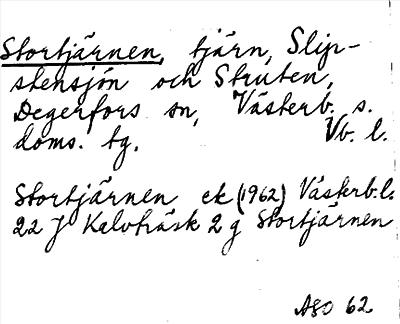 Stortjärnen, tjärn, Slip-
stensjön och Struten,
Degerfors sn, Västerb. s.
doms. tg. Vb. l.
Stortjärnen ek (1962) Västerb. l.
22 J Kalvträsk 2 g Stortjärnen
ASO 62